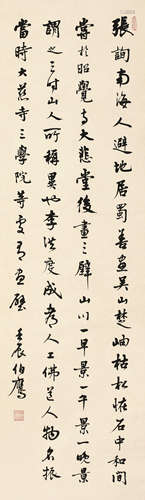 張詢南海人避地居蜀善畫吳山楚岫枯松怪石中和間
嘗於昭覺寺大悲堂後畫三壁山川一早景一午景一晚景
謂之三時山人所稱異也李洪度成都人工佛道人物名振
當時大慈寺三學院等處有畫壁 壬辰 伯鷹